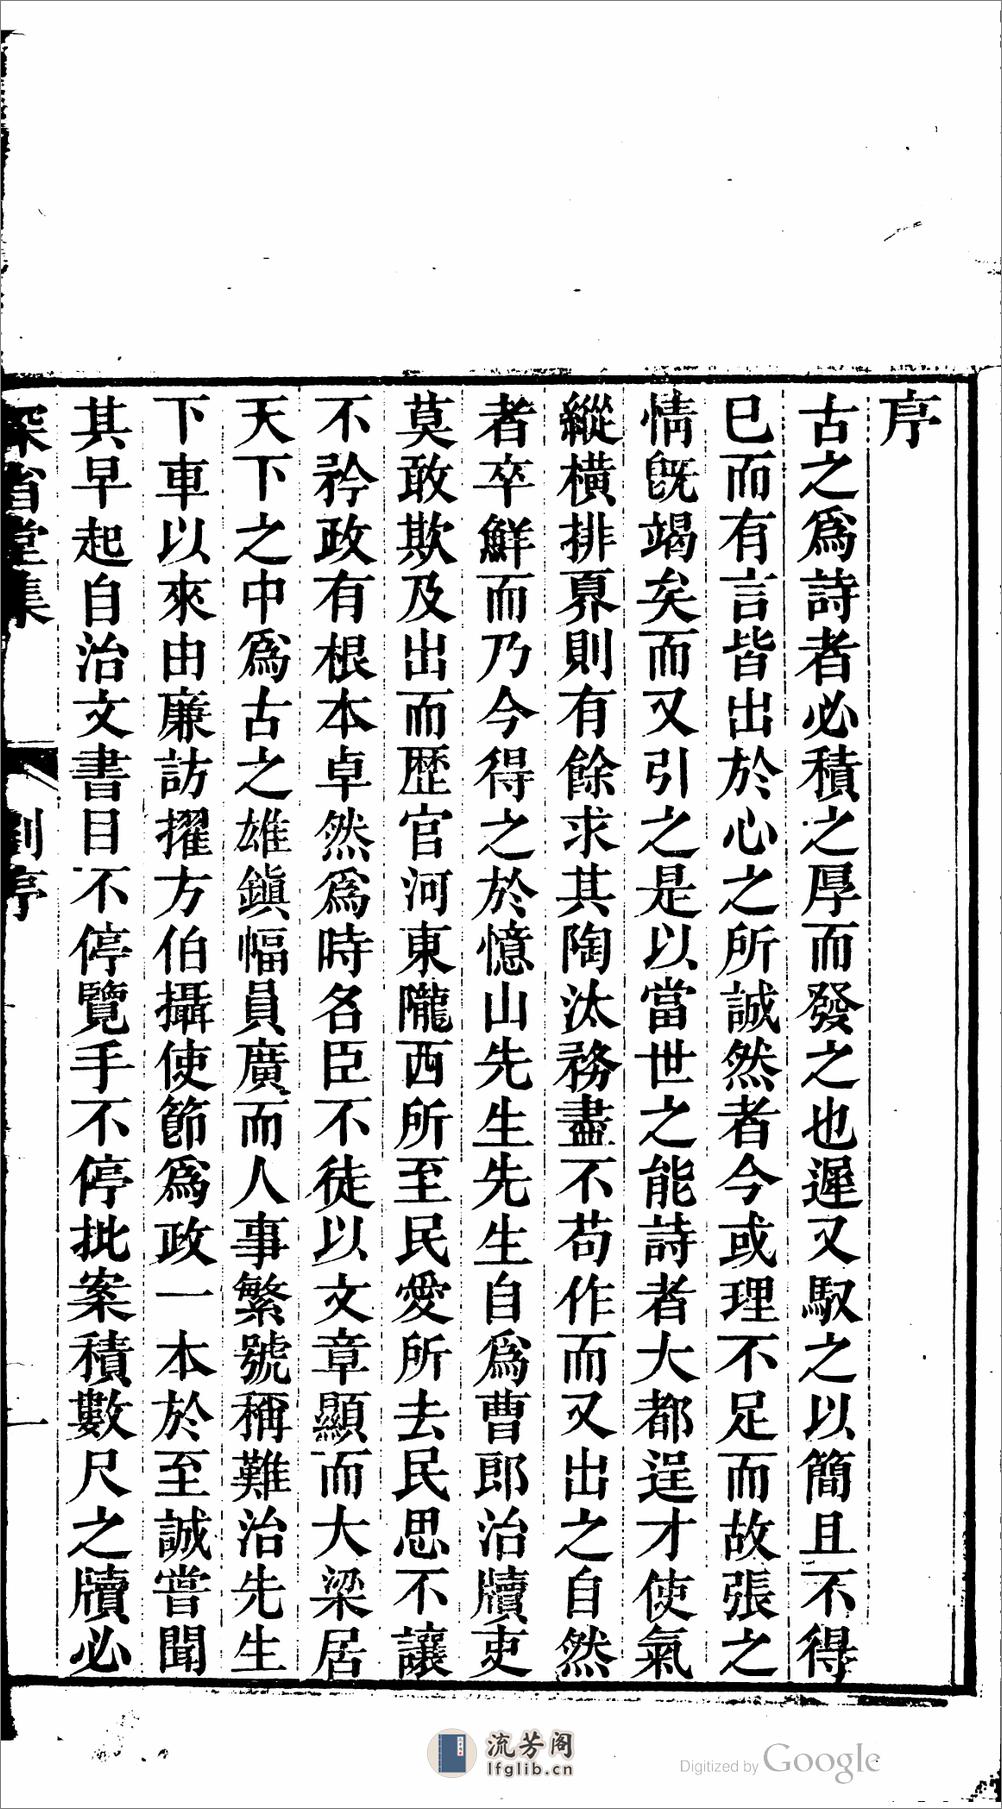 序
古之爲詩者必積之厚而發之也遲又馭之以簡且不得
已而有言皆出於心之所誠然者今或理不足而故張之
情旣竭矣而又引之是以當世之能詩者大都逞才使氣
縱橫排奡則有餘求其陶汰務盡不苟作而又出之自然
者卒鮮而乃今得之於憶山先生先生自爲曹郎治牘吏
莫敢欺及出而歷官河東隴西所至民愛所去民思不讓
不矜政有根本卓然爲時名臣不徒以文章顯而大梁居
天下之中爲古之雄鎭幅員廣而人事繁號稱難治先生
下車以來由廉訪擢方伯攝使節爲政一本於至誠嘗聞
其早起自治文書目不停覽手不停批案積數尺之牘必
深省堂集
劉序
一
流芳阁
lfglib.cn
Digitized by Google